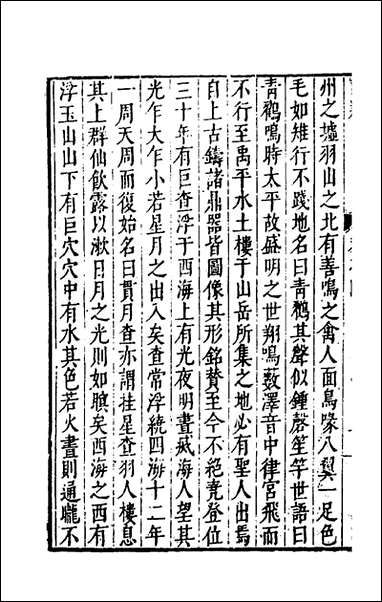 州之墟羽山之北有善鳴之禽人面鳥喙八翼一足色
毛如雉行不踐地名曰青鸐其聲似鍾磬笙竽世語曰
青鸐鳴時太平故盛明之世翔鳴藪澤音中律宮飛而
不行至禹平水土棲于山岳所集之地必有聖人出焉
自上古鑄諸鼎器皆圖像其形銘贊至今不絶堯登位
三十年有巨查浮于西海上有光夜明晝滅海人望其
光乍大乍小若星月之出入矣查常浮繞四海十二年
一周天周而復始名曰貫月查亦謂挂星查羽人棲息
其上群仙飲露以漱日月之光則如瞑矣西海之西有
浮玉山山下有巨穴穴中有水其色若火晝則通朧不